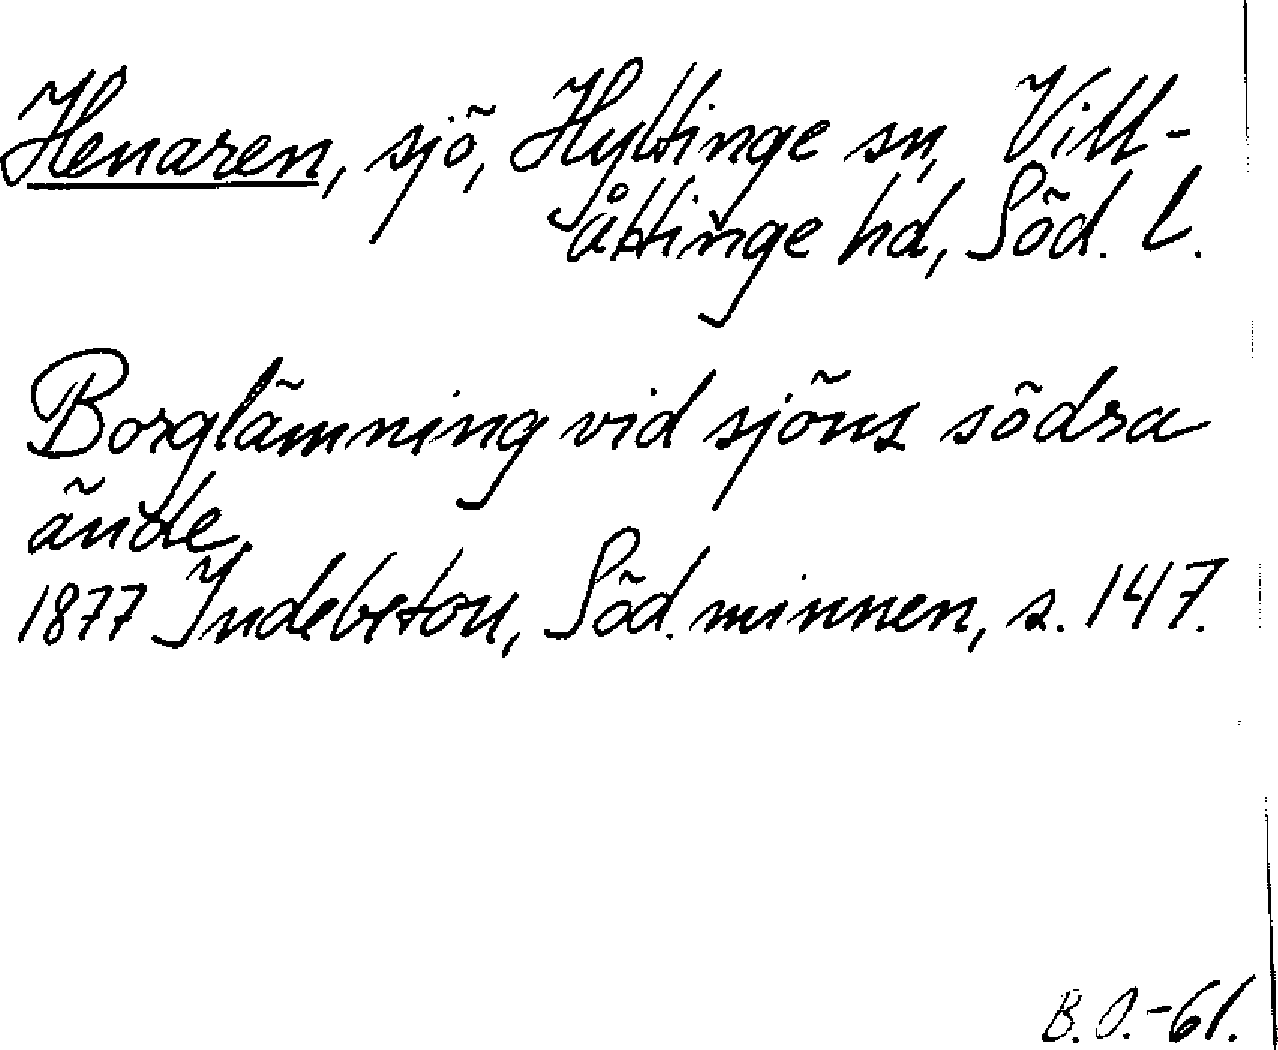 Henaren, sjö, Hyltinge sn, Vill-
åttinge hd, Söd. l.
Borglämning vid sjöns södra
ände.
1877 Indebetou, Söd. minnen, s. 147.
B.O.-61.